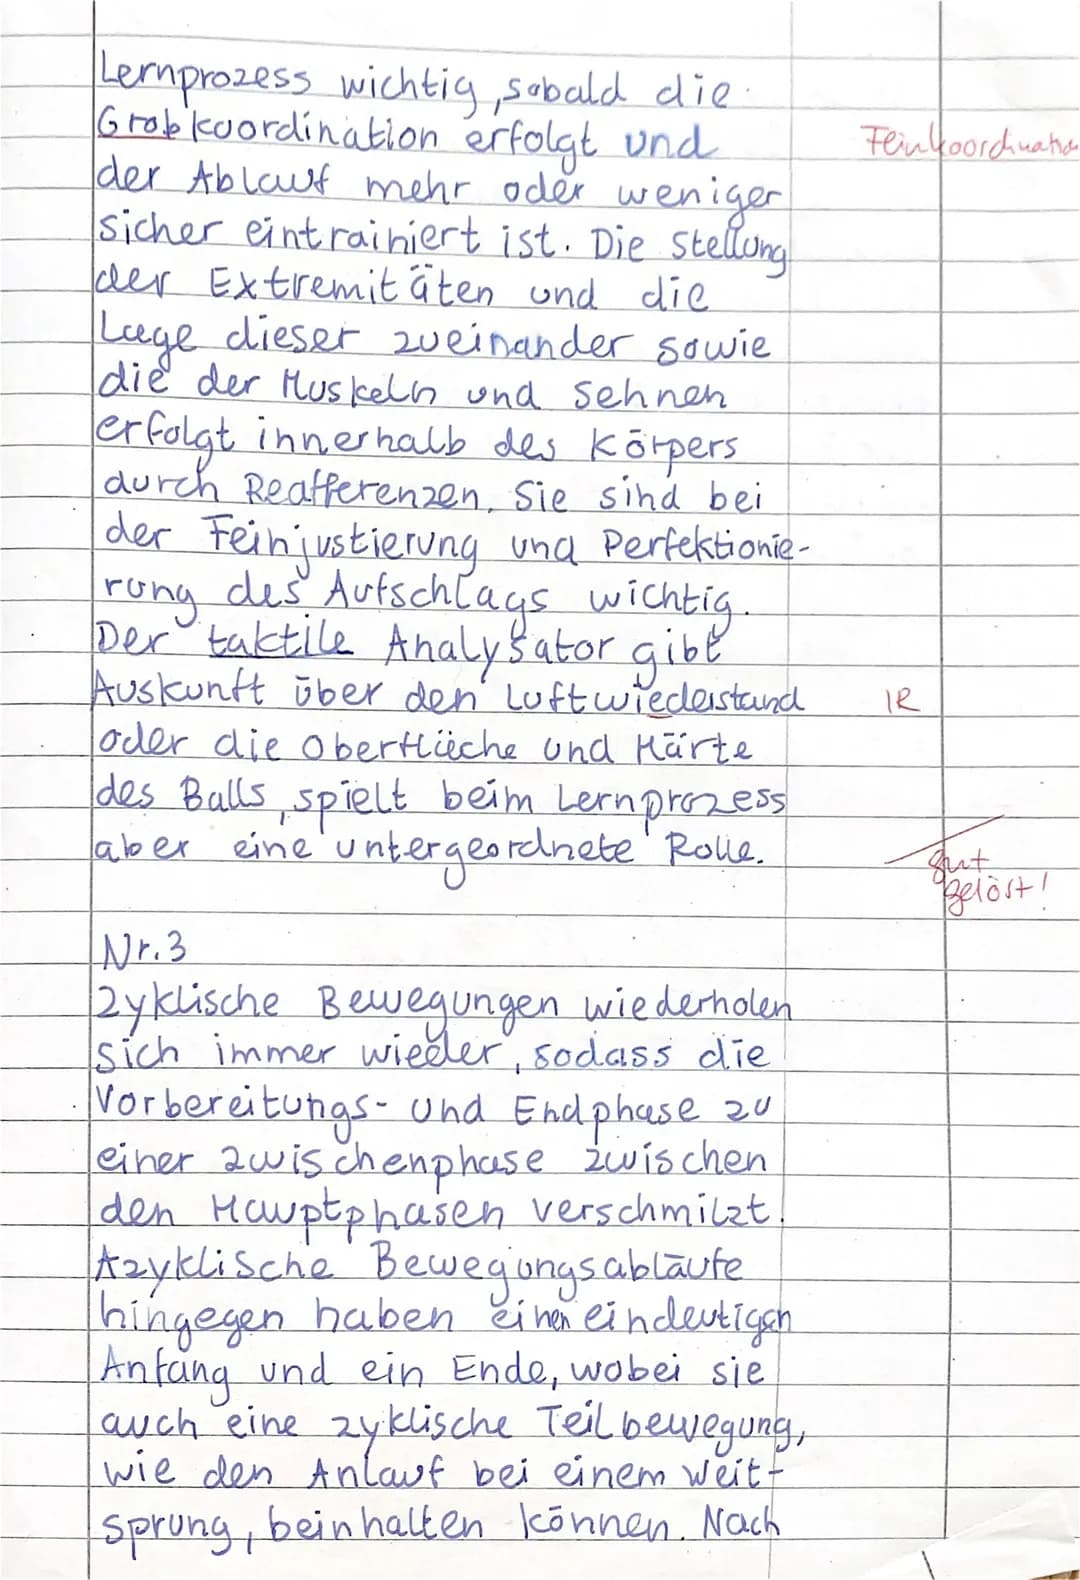 Lernprozess wichtig, sobald die
Grobkoordination erfolgt und
Feinkoordination
der Ablauf mehr oder weniger
sicher eintrainiert ist. Die Stellung
der Extremitäten und die
Lage dieser zueinander sowie
die der Muskeln und Sehnen
erfolgt innerhalb des Körpers
durch Reafferenzen. Sie sind bei
der Feinjustierung und Perfektionie-
rung des Aufschlags wichtig.
Der taktile Analysator gibt
Auskunft über den Luftwiederstand
IR
oder die Oberfläche und Härte
des Balls, spielt beim Lernprozess
aber eine untergeordnete Rolle.
gut
gelöst!
Nr. 3
Zyklische Bewegungen wiederholen
sich immer wieder, sodass die
Vorbereitungs- und Endphase zu
einer Zwischenphase zwischen
den Hauptphasen verschmilzt.
Azyklische Bewegungsabläufe
hingegen haben einen eindeutigen
Anfang und ein Ende, wobei sie
auch eine zyklische Teilbewegung,
wie den Anlauf bei einem Weit-
sprung, beinhalten können. Nach